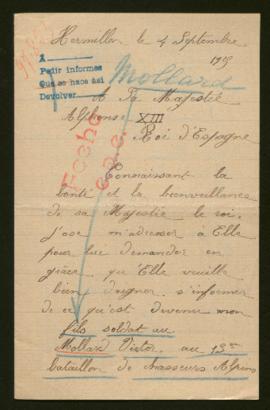 Hermillon le 4 Septembre
A
Pedir informes
Que se hace así
Devolver
Mollard
A Sa Majestée
Alphonse XIII
Roi d'Espagne
Fecho
Connaissant la
bonté et la bienveillance
de sa Majestée le roi.
j'ose m'adresser à Elle
pour lui demander en
grâce, qu'Elle veuille
bien daigner s'informer
de ce qu'est devenu mon
fils soldat au
Mollard Victor, au 13me
bataillon de chasseurs Alpins